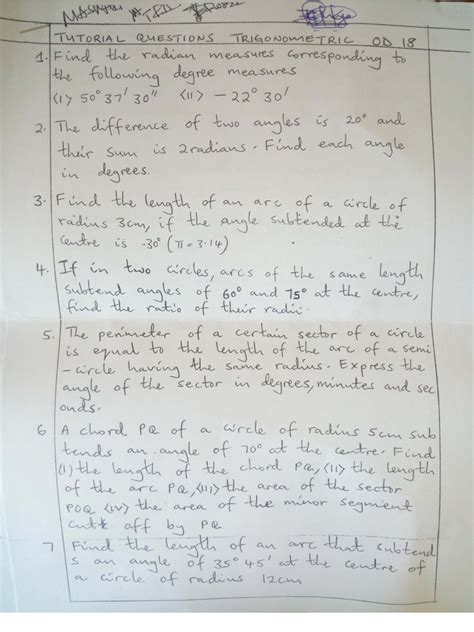 TUTORIAL QUESTIONS TRIGONOMETRIC OD 18
1. Find the radian measures corresponding to
the following degree measures
(I) 50° 37' 30" (II) - 22° 30'
2. The difference of two angles is 20° and
their sum is 2radians. Find each angle
in degrees.
3. Find the length of an arc of a circle of
radius 3cm, if the angle subtended at the
Centre is -30° (π = 3.14)
4. If in two circles, arcs of the same length
subtend angles of 60° and 75° at the centre,
find the ratio of their radii.
5. The perimeter of a certain sector of a circle
is equal to the length of the arc of a semi
- circle having the same radius. Express the
angle of the sector in degrees, minutes and sec
onds.
6 A chord PQ of a circle of radius 5cm sub
tends an angle of 70° at the centre. Find
(I) the length of the chord PQ, (II) the length
of the arc PQ, (III) the area of the sector
POQ (IV) the area of the minor segment
cut off by PQ
7 Find the length of an arc that subtend
s an angle of 35° 45' at the centre of
a circle of radius 12cm